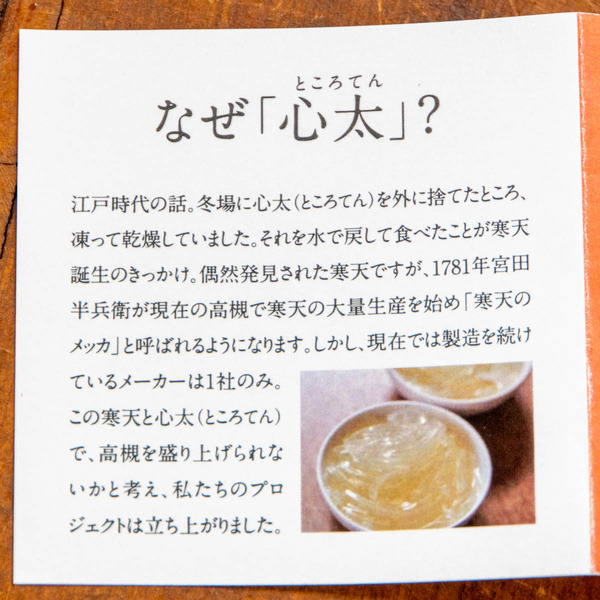 ところてん
なぜ「心太」?
江戸時代の話。冬場に心太(ところてん)を外に捨てたところ、
凍って乾燥していました。それを水で戻して食べたことが寒天
誕生のきっかけ。偶然発見された寒天ですが、1781年宮田
半兵衛が現在の高槻で寒天の大量生産を始め「寒天の
メッカ」と呼ばれるようになります。しかし、現在では製造を続け
ているメーカーは1社のみ。
この寒天と心太(ところてん)
で、高槻を盛り上げられな
いかと考え、私たちのプロ
ジェクトは立ち上がりました。